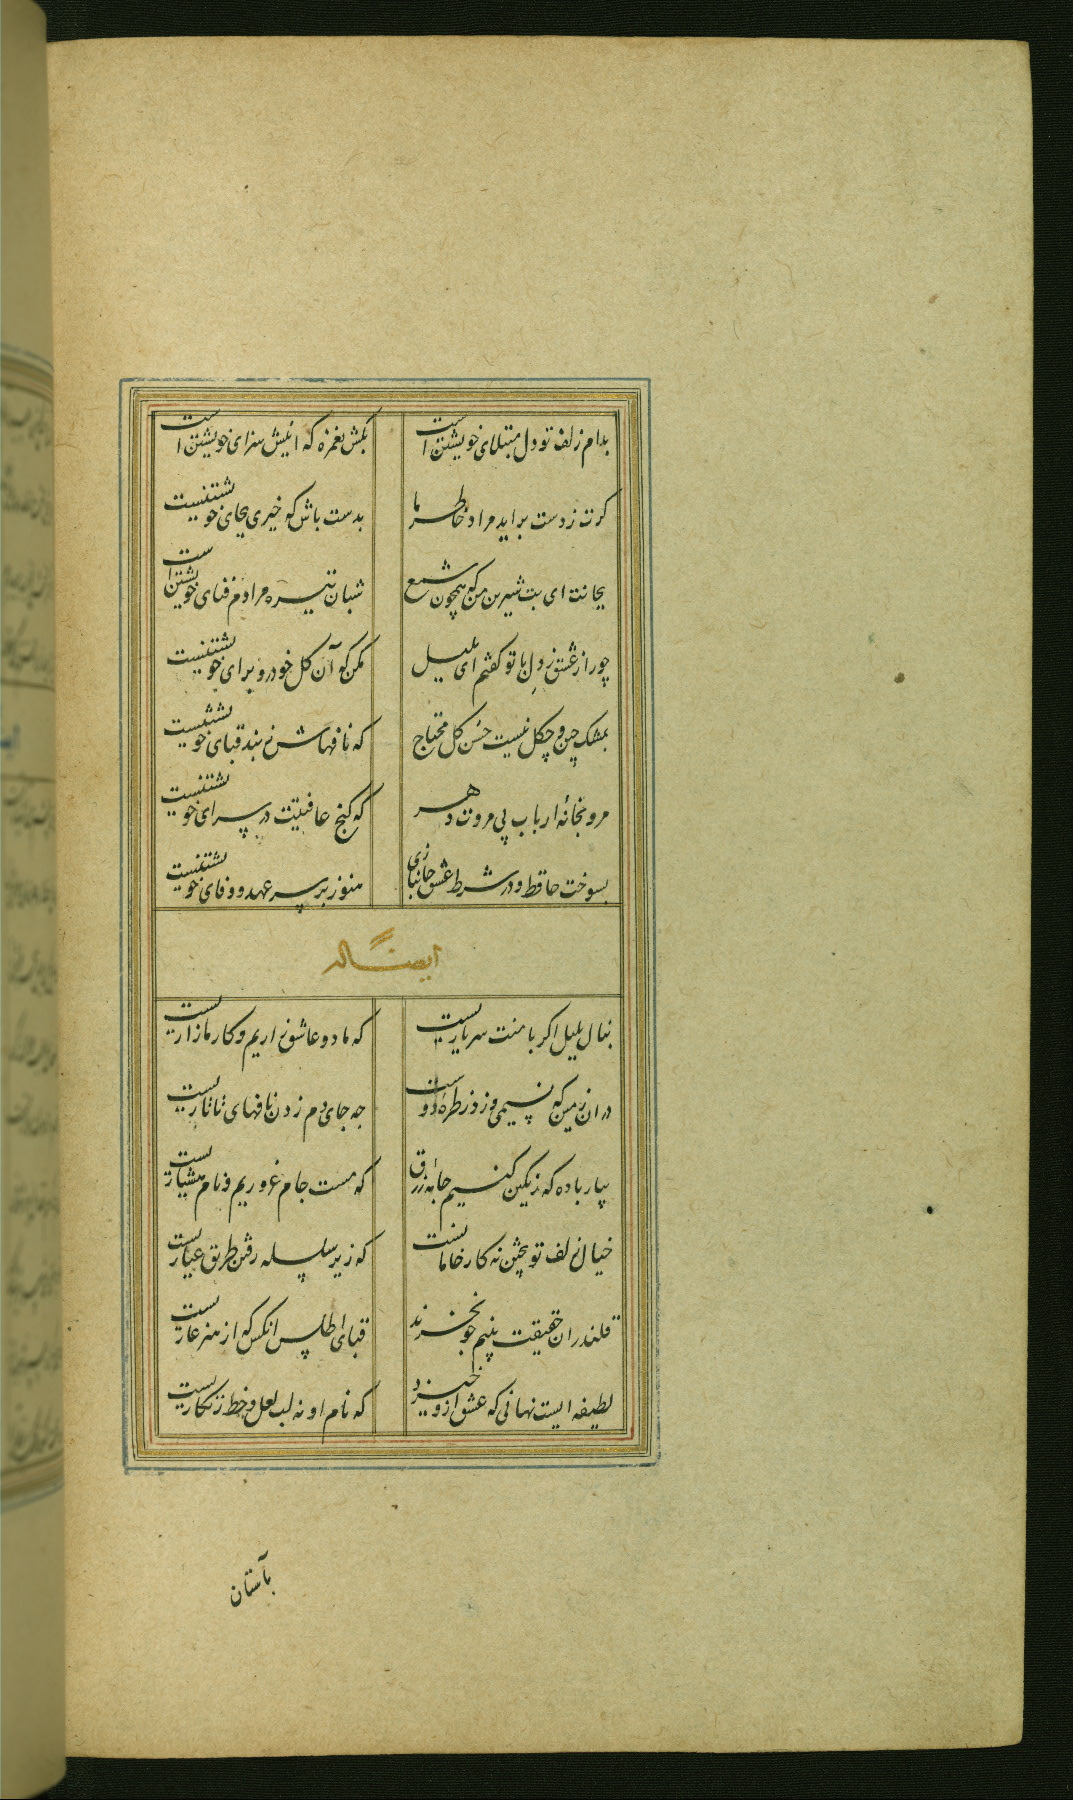 بدام زلف تو دل مبتلای خویشتن است بکش بغمزه که اینش سزای خویشتن است
کرت ز دست براید مراد خاطر ما بدست باش که خیری بجای خویشتنست
بجانت ای بت شیرین من که همچون شمع شبان تیره مرادم فنای خویشتن است
چو راز عشق ز دل با تو کفتم ای بلبل مکن که آن کل خودرو برای خویشتنست
بمشک چین و چکل نیست حسن کل محتاج که نافهاش ز بند قبای خویشتنست
مرو بخانهٔ ارباب بی مروت دهر که کنج عافیتت در سرای خویشتنست
بسوخت حافظ و در شرط عشق جانبازی هنوز بر سر عهد و وفای خویشتنست
ایضا له
بنال بلبل اکر با منت سر یاریست که ما دو عاشق زاریم و کار ما زاریست
در ان زمین که نسیمی وزد ز طرهٔ دوست چه جای دم زدن نافهای تاتاریست
بیار باده که رنکین کنیم جامهٔ زرق که مست جام غروریم و نام هشیاریست
خیال زلف تو پختن نه کار خامانست که زیر سلسله رفتن طریق عیاریست
قلندران حقیقت بنیم جو نخرند قبای اطلس انکس که از هنر عاریست
لطیفه ایست نهانی که عشق ازو خیزد که نام او نه لب لعل و خط زنکاریست
بآستان